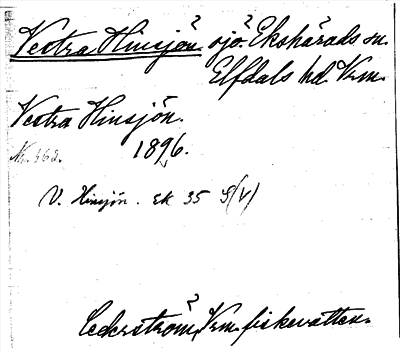 Vestra Hinsjön sjö. Ekshärads sn.
Elfdals hd. Vrm.
Vestra Hinsjön.
Nr. 162. 1896.
V. Hinsjön. EK 35 S(V)
Cederström, Vrm. fiskevatten.